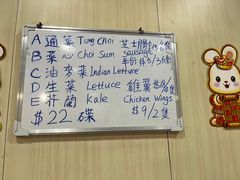 A 通菜 Tung Choi 芝士腸
B 菜心 Choi Sum sausage
C 油麥菜 Indian Lettuce
D 生菜 Lettuce 雞翼
E 芥蘭 Kale Chicken Wings
$22 碟 $9/2隻